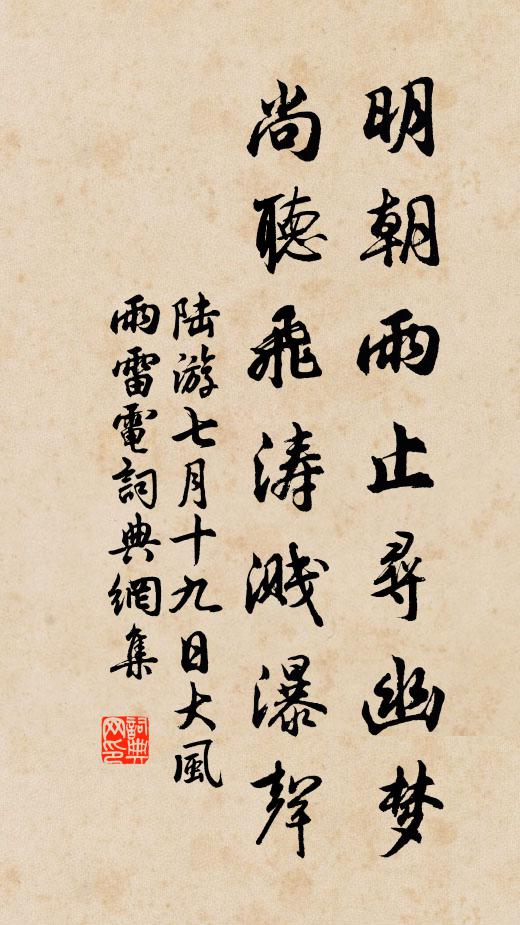 明朝雨止尋幽梦
尚聴飛涛溅瀑聲
陆游七月十九日大風
雨雷電詞典網集
詞典
网印